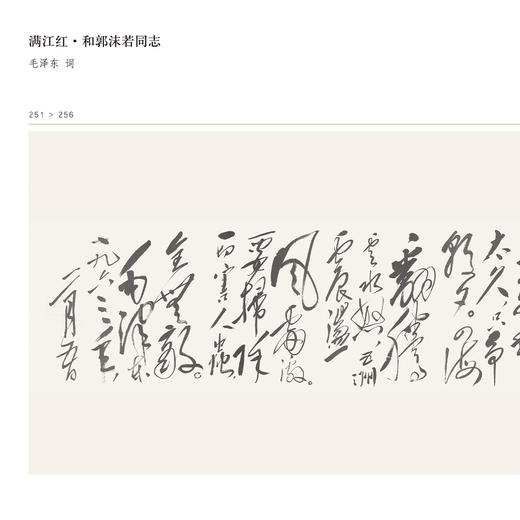 满江红·和郭沫若同志
毛泽东 词
251 > 256
太久只争
朝夕。四海
翻騰
雲水怒五洲
震盪
風雷激。
要掃除
一切害人蟲
全無敵。
毛澤東
一九六三年
二月五日